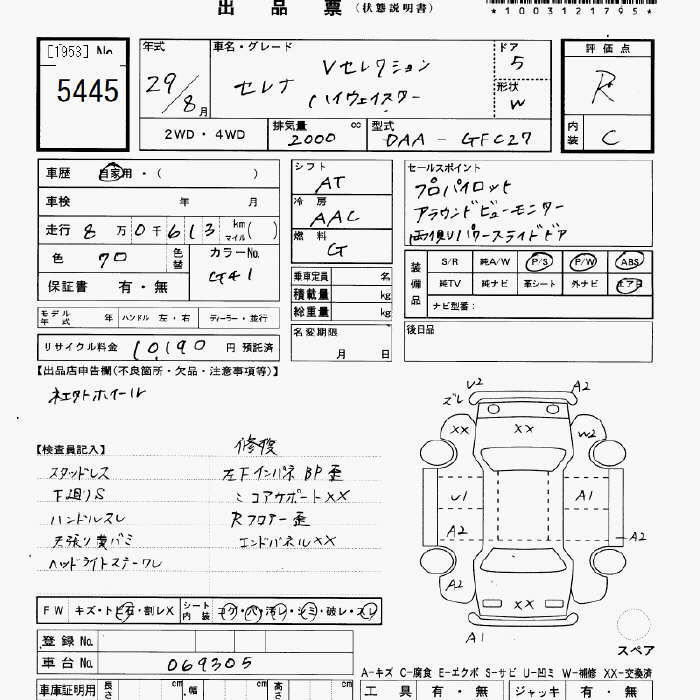 出品票(状態説明書)
*1003121795*
[1953] No
5445
年式
29/8月
車名・グレード
セレナ Vセレクション
ハイウェイスター
ドア
5
形状
W
評価点
R
内装 C
2WD・4WD
排気量 cc
2000
型式
DAA-GFC27
車歴 自家用・( )
車検 年 月
走行 8万0千613 km マイル( )
色 クロ 色替 カラーNo. G41
保証書 有・無
シフト
AT
冷房
AAC
燃料
G
乗車定員 名
積載量 kg
総重量 kg
セールスポイント
プロパイロット
アラウンドビューモニター
両側Vパワースライドドア
装備品
S/R 純A/W P/S P/W ABS
純TV 純ナビ 革シート 外ナビ エアB
ナビ型著:
モデル年式 年 ハンドル 左・右 ディーラー・並行
リサイクル料金 10,190 円 預託済
名変期限
月 日
後日品
【出品店申告欄(不良箇所・欠品・注意事項等)】
社外ホイール
【検査員記入】 修復
スタッドレス 左下インパネBP歪
下廻りS 〃コアサポートXX
ハンドルスレ Rフロアー歪
天張り黄バミ エンドパネルXX
ヘッドライトステーワレ
U2
ズレ
A2
XX
XX
W2
U1
A1
A2
A2
A2
A2
XX
A1
スペア
FW キズ・トビ石・割レX シート内装 コゲ・穴・汚レ・シミ・破レ・スレ
登録No.
車台No. 069305
A-キズ C-腐食 E-エクボ S-サビ U-凹ミ W-補修 XX-交換済
車庫証明用 長さ cm 幅 cm 高さ cm
工具 有・無 ジャッキ 有・無